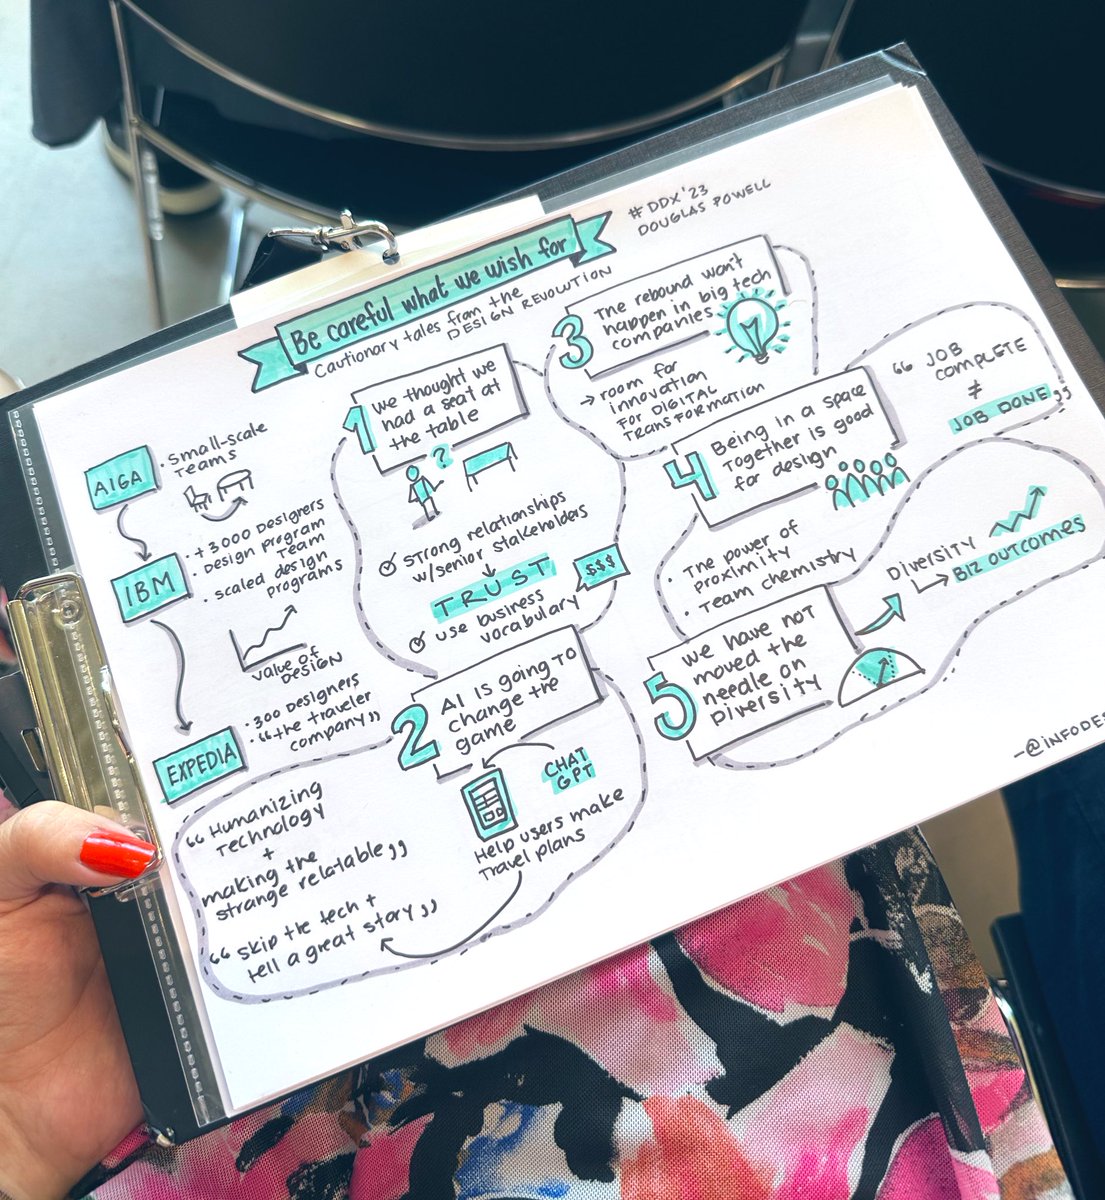 #DDX'23
DOUGLAS POWELL
Be careful what we wish for
Cautionary tales from the
DESIGN REVOLUTION
AIGA
• Small-scale
Teams
IBM
• +3000 Designers
• Design Program
Team
• scaled design
programs
value of
DESIGN
EXPEDIA
• 300 Designers
• "the traveler
company"
1
we thought we
had a seat at
the table
?
strong relationships
w/senior stakeholders
TRUST
$$$
use business
vocabulary
2
AI is going to
change the
game
CHAT
GPT
Help users make
Travel plans
"Humanizing
Technology
+
making the
strange relatable"
"Skip the tech +
tell a great story"
3
The rebound won't
happen in big tech
companies
→ room for
innovation
FOR DIGITAL
TRANSFORMATION
4
Being in a space
Together is good
for design
• The power of
proximity
• Team chemistry
"JOB
COMPLETE
≠
JOB DONE"
5
we have not
moved the
needle on
Diversity
DIVERSITY
BIZ OUTCOMES